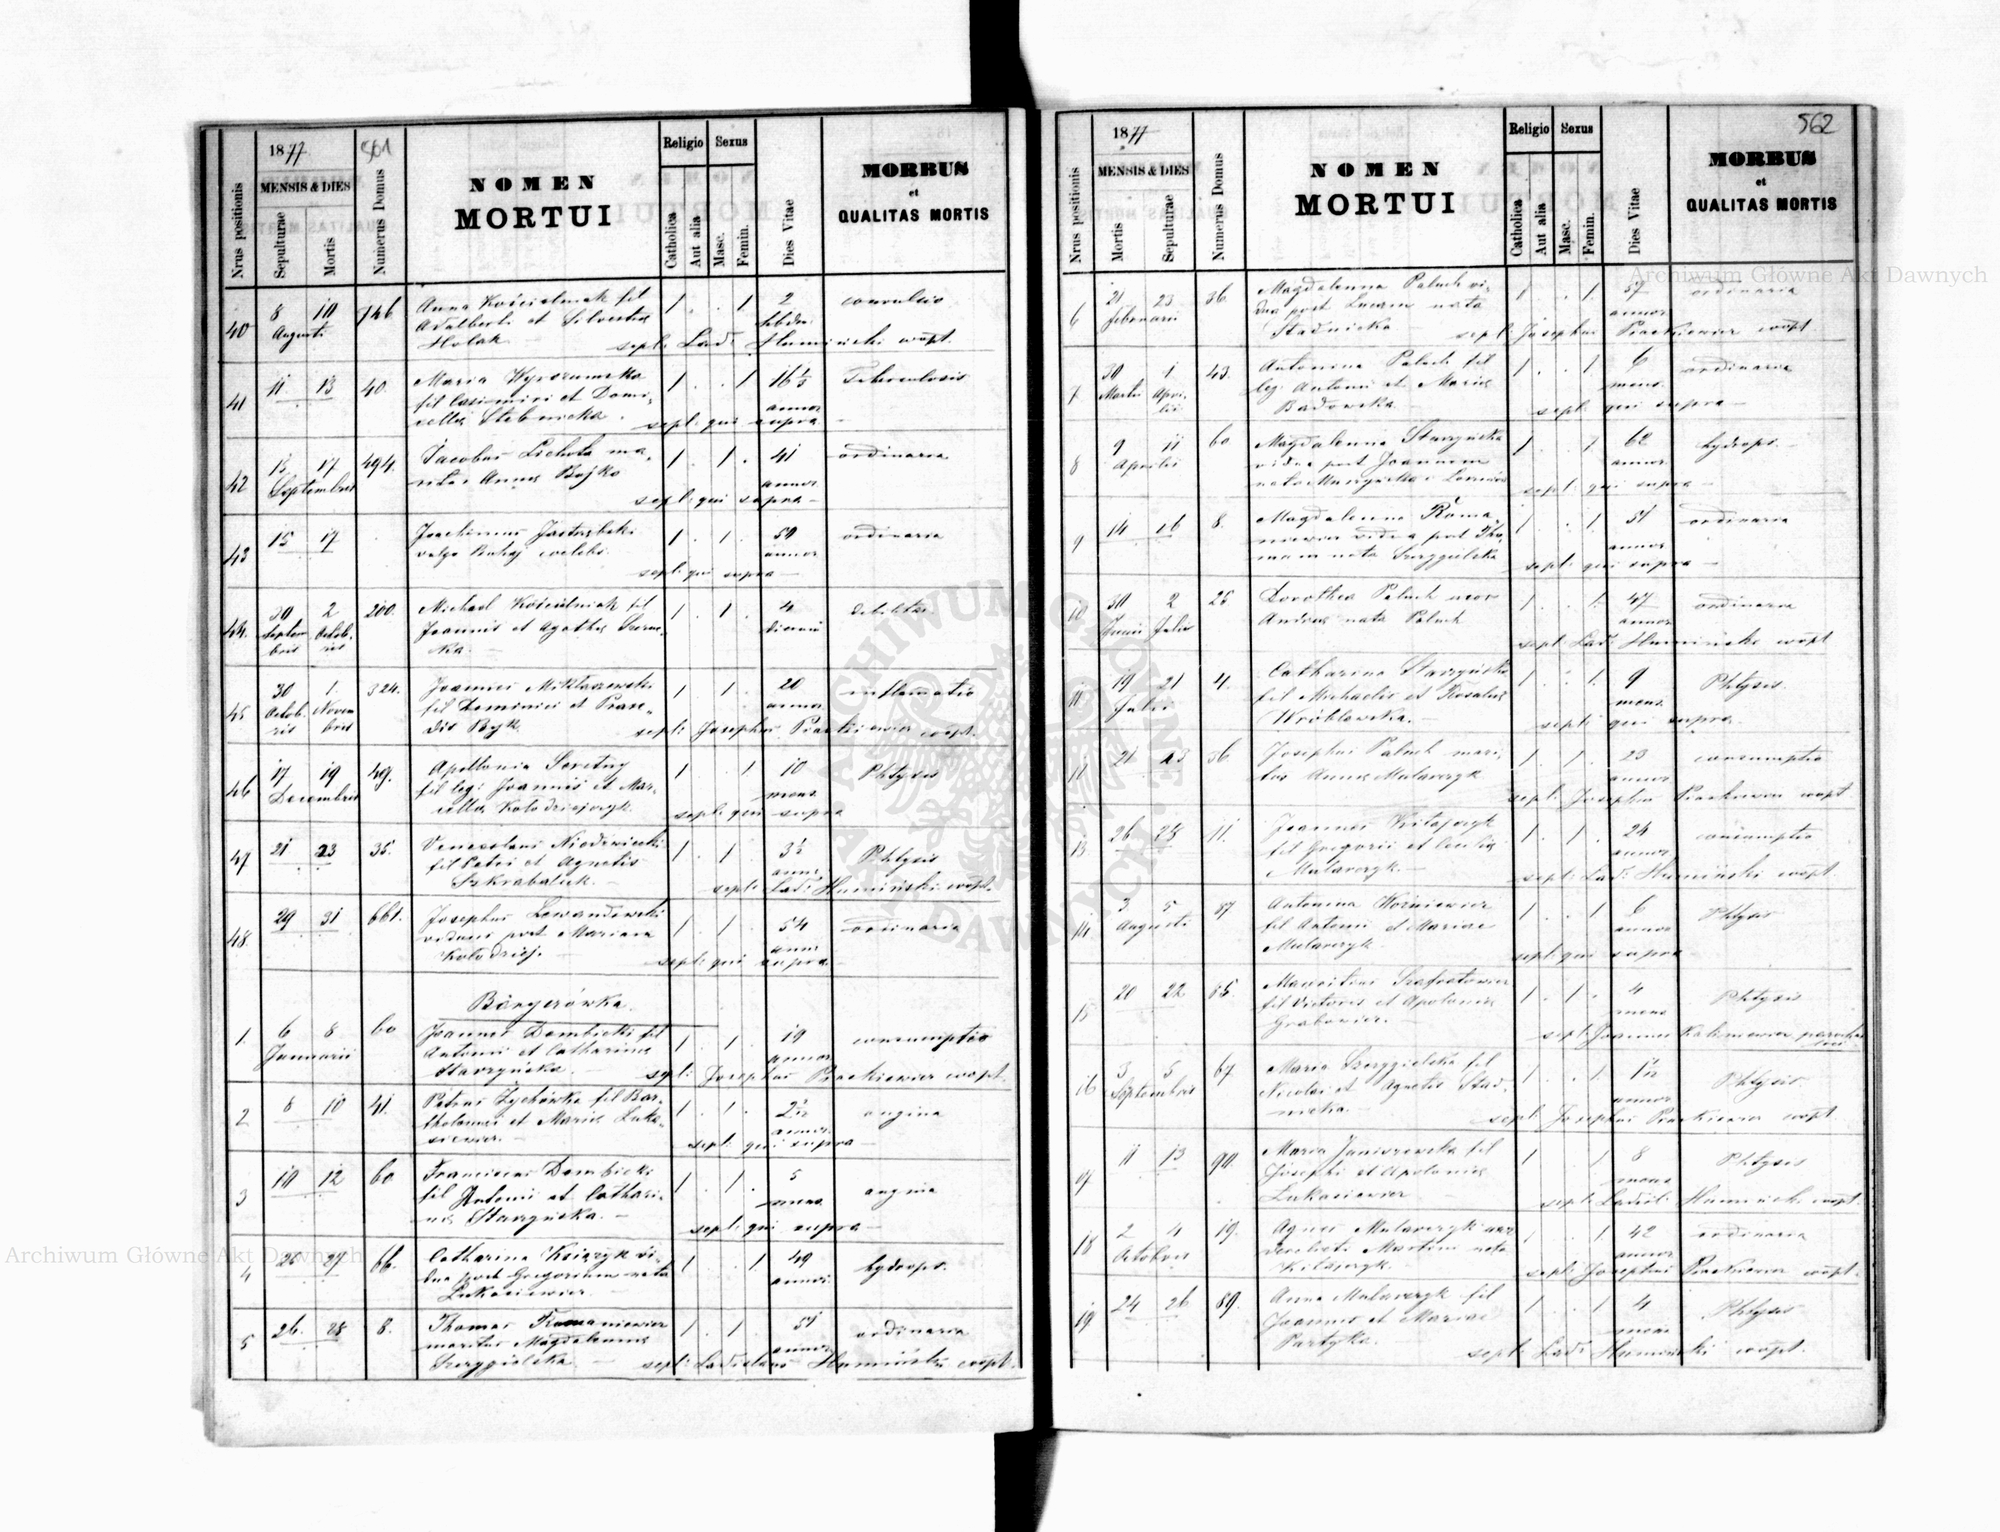 1877
561
Nrus positionis
MENSIS & DIES
Sepulturae
Mortis
Numerus Domus
NOMEN
MORTUI
Religio
Catholica
Aut alia
Sexus
Masc.
Femin.
Dies Vitae
MORBUS
et
QUALITAS MORTIS
40 8 10 746 Anna Kościelniak fil 1 . . 1 2 convulsio
Augusti Adalberti et Silvestra
Holak sepl: Lad: Humiński coopt.
41 11 13 40. Maria Wyrozumska 1 . . 1 16½ Tuberculosis
fil Casimiri et Domi- annor
cella Stebnicka sepl: qui supra
42 15 17 494. Jacobus Lichota ma- 1 . 1 . 41 ordinaria
Septembris ritus Anna Bojko annor
sepl: qui supra
43 15 17 Joachimus Jastrzębski 1 . 1 . 59 ordinaria
vulgo Buhaj coelebs annor
sepl: qui supra
44. 30 2 200. Michael Kościelniak fil 1 . 1 . 4 debilitas
Septem Octob- Joannis et Agatha dierum
bris ris
45 30 1. 324. Joannes Miklaszewski 1 . 1 . 20 inflamatio
Octob- Novem fil Dominici et Praxe- annor
ris bris dis Byk sepl: Josephus Piackiewicz coopt.
46 17 19 49. Apollonia Seretny 1 . . 1 10 Phtysis
Decembris fil leg: Joannis et Mar- mens
cella Kołodziejczyk sepl: qui supra
47 21 23 35. Venceslaus Niedźwiecki 1 . 1 . 3½ Phtysis
fil Petri et Agnetis annor
Szkrabaluk sepl: Lad: Humiński coopt.
48. 29 31 661. Josephus Lewandowski 1 . 1 . 54 ordinaria
viduus post Mariana annor
Kołodziej sepl: qui supra
Bürgerówka.
1. 6 8 60 Joannes Dembicki fil 1 . 1 . 19 consumptio
Januarii Antonii et Catharina annor
Starzyńska sepl: Josephus Piackiewicz coopt.
2 8 10 41. Petrus Żychówka fil Bar- 1 . 1 . angina
tholomei et Maria Luka- annor
siewicz. sepl: qui supra
3 10 12 60 Franciscus Dembicki 1 . 1 . 5 angina
fil Antonii et Cathari- mens
na Starzyńska. sepl: qui supra
4 25 27 66. Catharina Książyk vi- 1 . . 1 49 hydrops.
dua post Gregorium nata annor
Lukasiewicz.
5 26. 28 8. Thomas Romaniewicz 1 . 1 51 ordinaria
maritus Magdalenna annor
Szczygielska sepl: Ladislaus Humiński coopt.
1877
562
Nrus positionis
MENSIS & DIES
Mortis
Sepulturae
Numerus Domus
NOMEN
MORTUI
Religio
Catholica
Aut alia
Sexus
Masc.
Femin.
Dies Vitae
MORBUS
et
QUALITAS MORTIS
6 21 23 36. Magdalenna Paluch vi- 1 . . 1. 57 ordinaria
Februarii dua post Lucam nata annor
Stadnicka sepl: Josephus Piackiewicz coopt.
7 30 1 43. Antonina Paluch fil 1 . . 1 6 ordinaria
Martii Apri- leg: Antonii et Maria mens
lis Badowska sepl: qui supra
8 9 11 60 Magdalenna Starzyńska 1 . . 1 62 hydrops.
Aprilis vidua post Joannem annor
sepl: qui supra
9 14 16 8. Magdalenna Roma- 1 . . 1 51 ordinaria
niewicz vidua post Tho- annor
mam nata Szczygielska sepl: qui supra
10 30 2 25 Dorothea Paluch uxor 1 . . 1. 47 ordinaria
Junii Julii Andrea nata Paluch annor
sepl: Lad: Humiński coopt
11 19 21 4. Catharina Starzyńska 1 . . 1. 9 Phtysis.
Julii fil Michaelis et Rosalia mens
Wróblewska. sepl: qui supra.
11 21 23 36. Josephus Paluch mari- 1 . 1 . 23 consumptio
tus Anna Mularczyk annor
sepl: Josephus Piackiewicz coopt
13 26 28 11. Joannes 1 . 1 . 24 consumptio
fil Gregorii et Cecilia annor
Mularczyk. sepl: Lad: Humiński coopt.
14 3 5 87 Antonina Woźniewicz 1 . . 1 6 Phtysis
Augusti fil Antonii et Mariae annor
Mularczyk sepl: qui supra
15 20 22 85. Mauritius 1 . 1 . 4 Phtysis
fil Victoris et Apolonia mens
Grabowicz. sepl: Joannes Kalinewicz parochus
loci.
16 3 5 67. Maria Szczygielska fil 1 . . 1 Phtysis
Septembris Nicolai et Agnetis Stad- annor
nicka. sepl: Josephus Piackiewicz coopt.
17 11 13 90. Maria Janiszewska fil 1 . 1 8 Phtysis
Josephi et Apolonia mens
Lukasiewicz sepl: Ladisl: Humiński coopt.
18 2 4 19. Agnes Mularczyk uxor 1 . . 1 42 ordinaria
Octobris Martini nata annor
sepl: Josephus Piackiewicz coopt.
19. 24 26 89. Anna Mularczyk fil 1 . . 1 4 Phtysis
Joannis et Mariae mens
Partyka. sepl: Lad: Humiński coopt.
Archiwum Główne Akt Dawnych
Archiwum Główne Akt Dawnych
ARCHIWUM GŁÓWNE AKT DAWNYCH